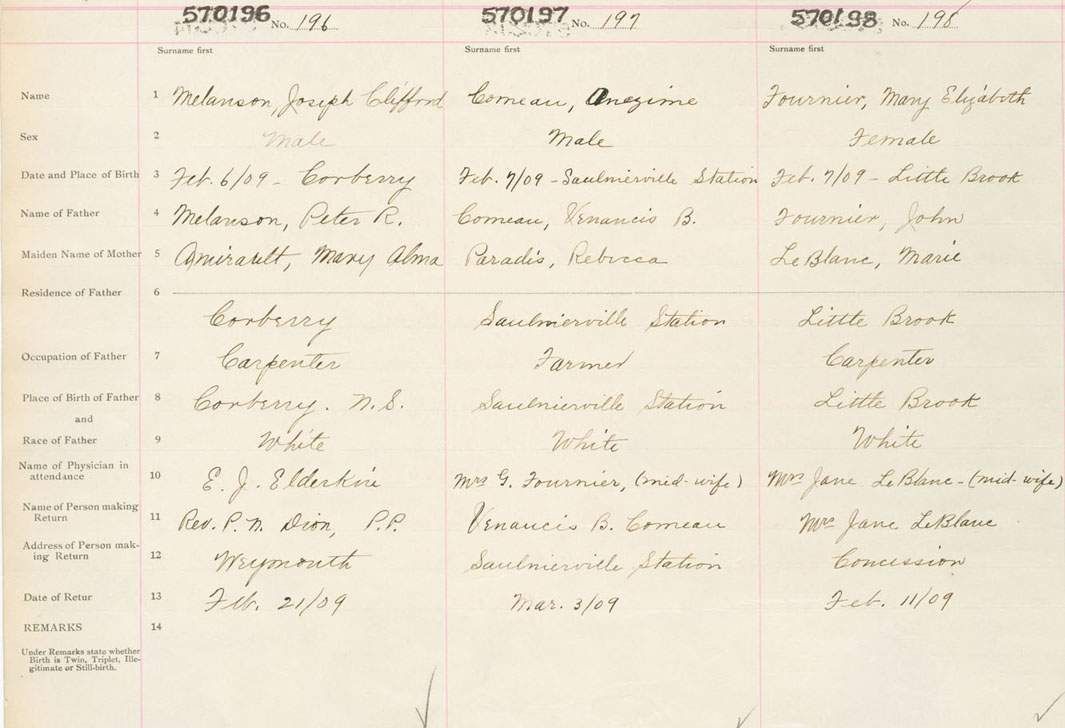 570196 No. 196 570197 No. 197 570198 No. 198
Surname first Surname first Surname first
Name 1 Melanson, Joseph Clifford Comeau, Onezime Fournier, Mary Elizabeth
Sex 2 Male Male Female
Date and Place of Birth 3 Feb. 6/09 - Corberry Feb. 7/09 - Saulnierville Station Feb. 7/09 - Little Brook
Name of Father 4 Melanson, Peter R. Comeau, Venancis B. Fournier, John
Maiden Name of Mother 5 Amirault, Mary Alma Paradis, Rebecca LeBlanc, Marie
Residence of Father 6
Corberry Saulnierville Station Little Brook
Occupation of Father 7 Carpenter Farmer Carpenter
Place of Birth of Father 8 Corberry. N.S. Saulnierville Station Little Brook
and
Race of Father 9 White White White
Name of Physician in
attendance 10 E. J. Elderkin Mrs G. Fournier, (mid-wife) Mrs Jane LeBlanc - (mid-wife)
Name of Person making
Return 11 Rev. P. M. Dion, P.P. Venancis B. Comeau Mrs Jane LeBlanc
Address of Person mak-
ing Return 12 Weymouth Saulnierville Station Concession
Date of Retur 13 Feb. 21/09 Mar. 3/09 Feb. 11/09
REMARKS 14
Under Remarks state whether
Birth is Twin, Triplet, Ille-
gitimate or Still-birth.